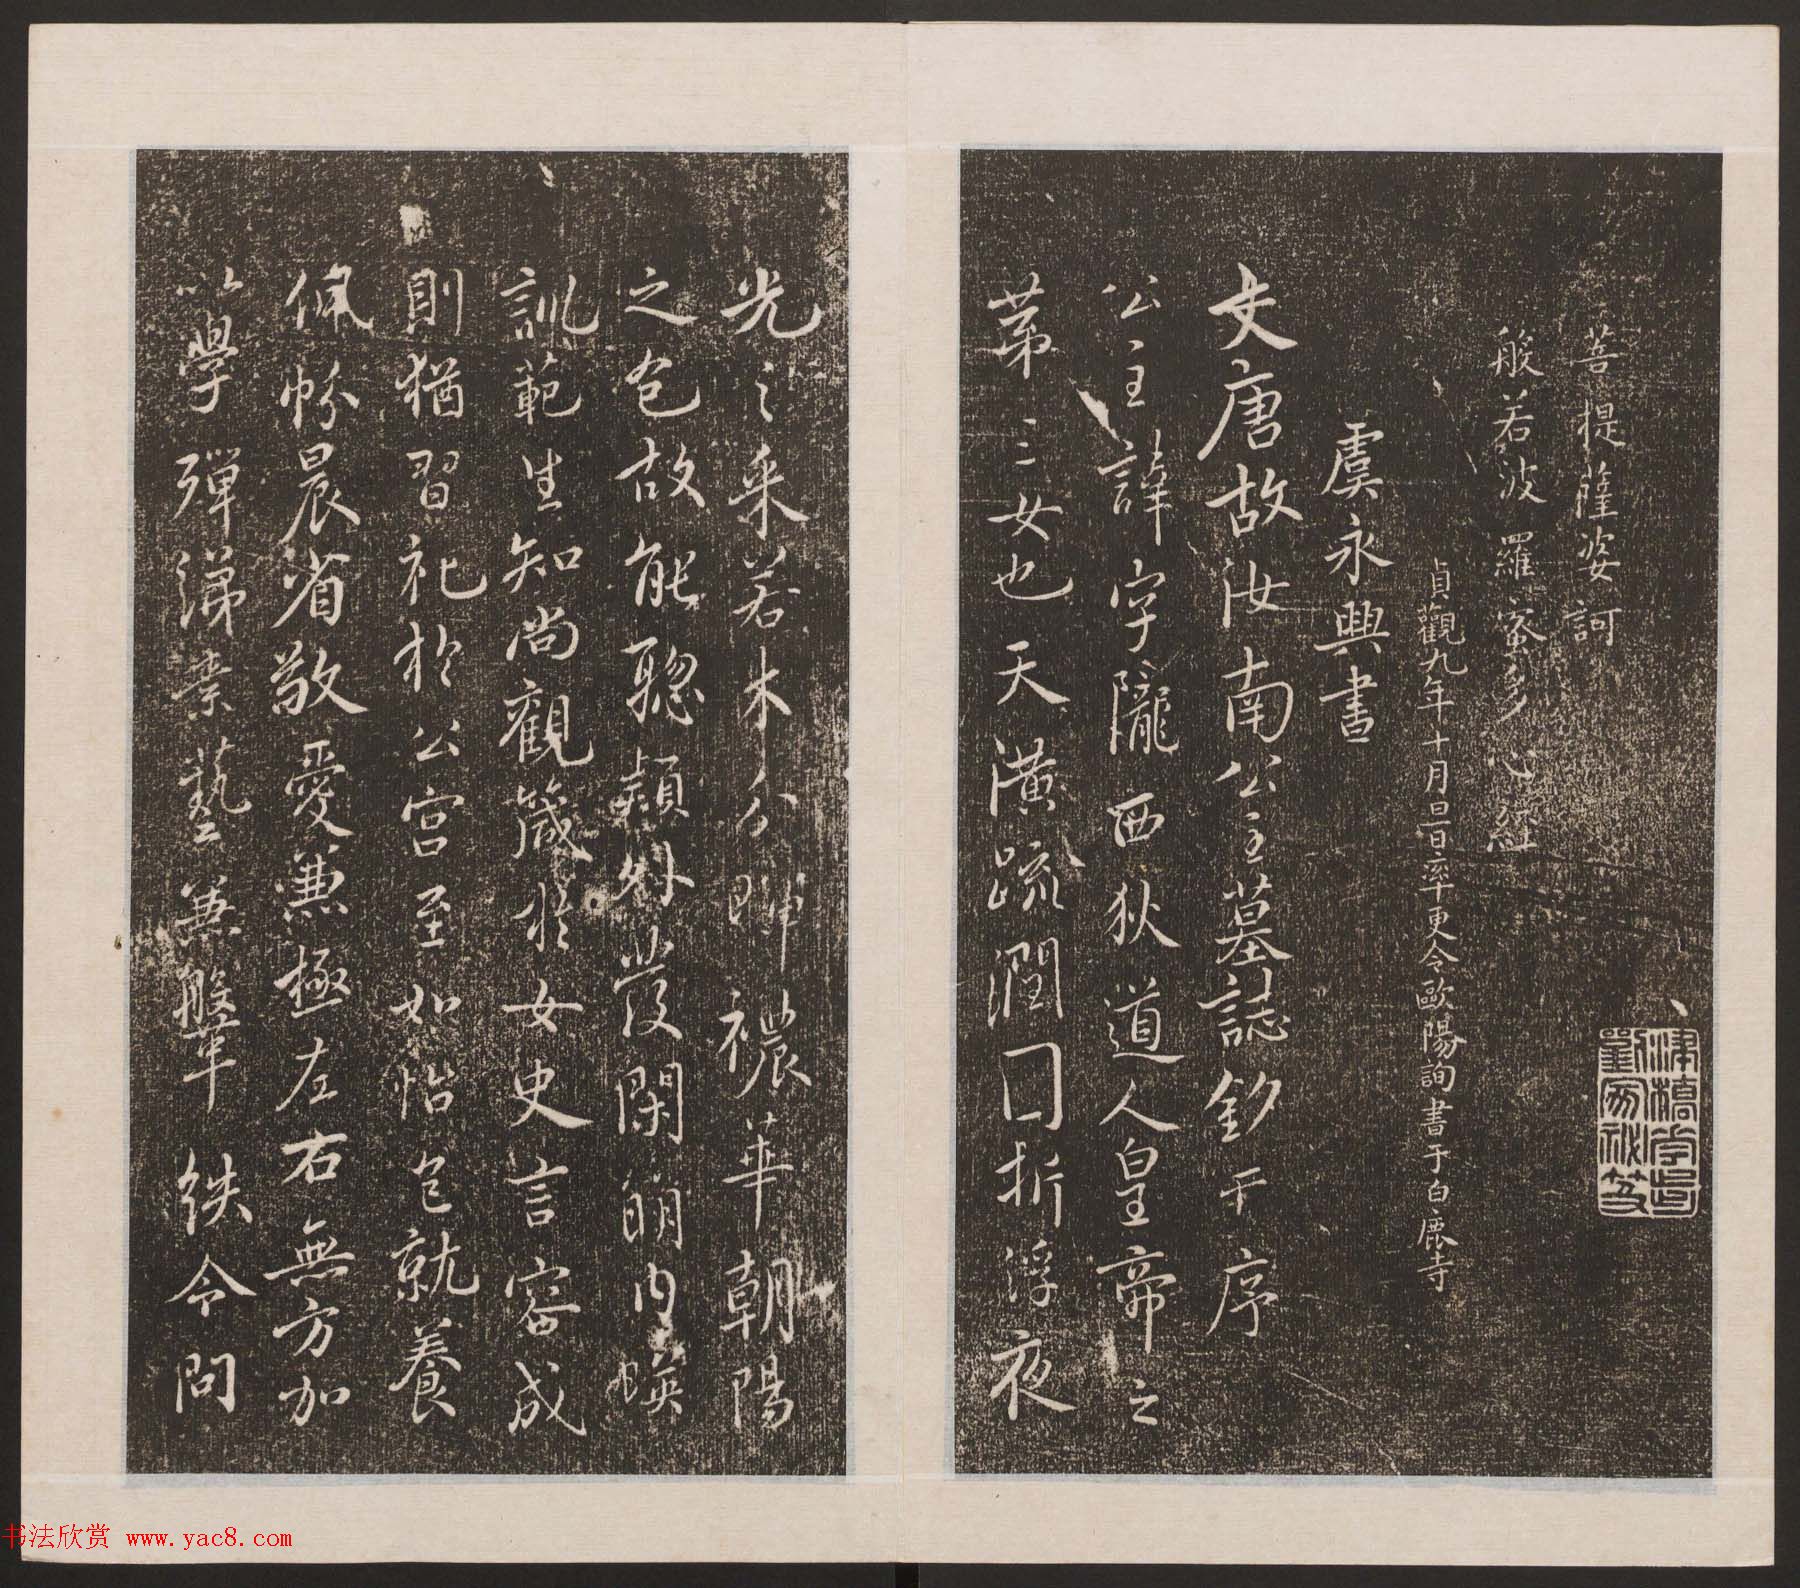 菩提薩娑訶
般若波羅蜜多心經
貞觀九年十月旦日率更令歐陽詢書于白鹿寺
虞永興書
大唐故汝南公主墓誌銘并序
公主諱字隴西狄道人皇帝之
第三女也天潢疏潤圓折浮夜
光之采若木分暉穠華朝陽
之色故能聰穎外發閑明內暎
訓範生知尚觀箴於女史言容成
則猶習礼於公宮至如怡色就養
佩帉晨省敬愛兼極左右無方加
以學殫綈素藝兼鞶紩令問
书法欣赏 www.yac8.com